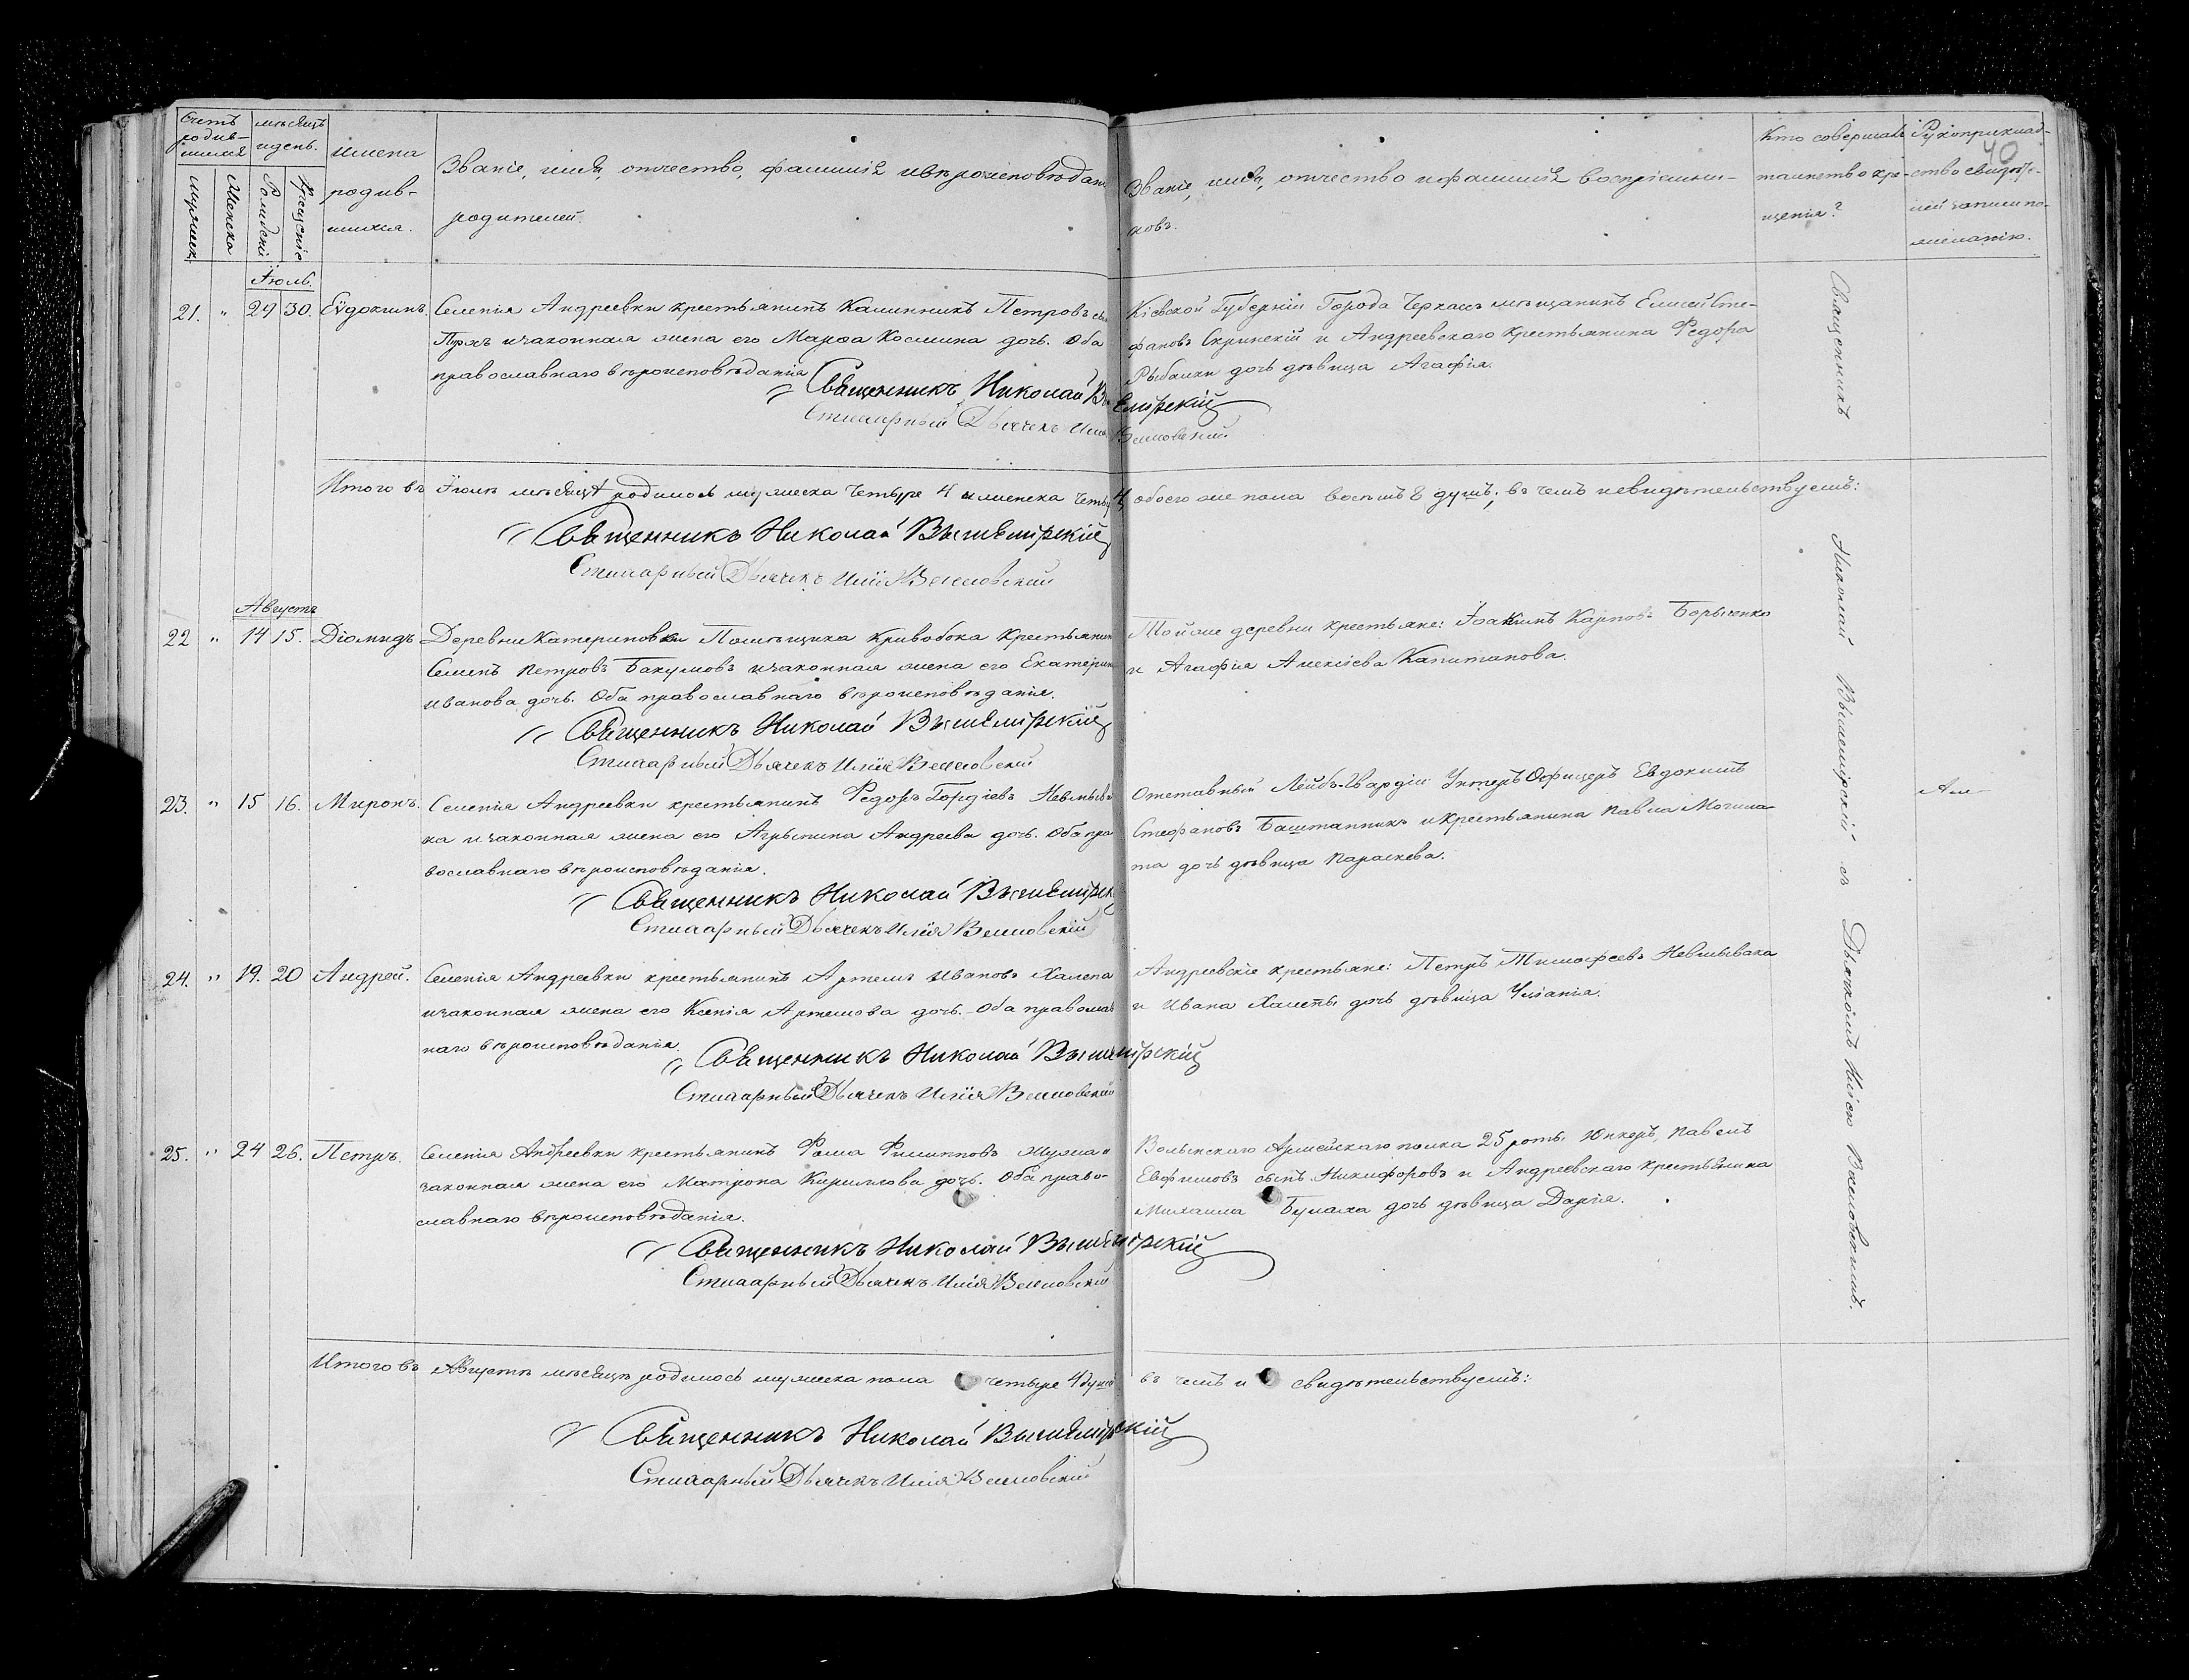 Счетъ родив-шихся
мѣсяцъ и день.
Имена родив-шихся.
Званіе, имя, отчество, фамилія и вѣроисповѣданіе
родителей.
Званіе, имя, отчество и фамилія воспріемни-
ковъ.
Кто совершалъ
таинство кре-
щенія?
Рукоприклад-
ство свидѣте-
лей записи по
желанію.
40
Мужеска
Женска
Рожденіе
Крещеніе
Іюль.
21. " 29 30. Евдокимъ. Селенія Андреевки крестьянинъ Калинникъ Петровъ
законная жена его Марѳа Космина дочь. Оба
православнаго вѣроисповѣданія
Священникъ Николай Вышемірскій
Стихарный Дьячекъ Илія
Кіевской Губерніи Города Черкасъ мѣщанинъ Елисей Сте-
фановъ Скринскій и Андреевскаго крестьянина Федора
Рыбалки дочь дѣвица Агафія.
Итого въ Іюлѣ мѣсяцѣ родилось мужеска четыре 4 и женска четыре 4, обоего же пола восемь 8 душъ; въ чемъ и свидѣтельствуемъ:
Священникъ Николай Вышемірскій
Стихарный Дьячекъ Илія
Августъ
22 " 14 15. Діомидъ Деревни Катериновки Помѣщика Кривобока крестьянинъ
Семенъ Петровъ Бакумовъ и законная жена его Екатерина
Иванова дочь. Оба православнаго вѣроисповѣданія.
Священникъ Николай Вышемірскій
Стихарный Дьячекъ Илія
Той же деревни крестьяне: Іоакимъ Карповъ
и Агафія Алексіева Капитанова.
23. " 15 16. Миронъ. Селенія Андреевки крестьянинъ Федоръ Гордіевъ Невмыва-
ка и законная жена его Агрыпина Андреева дочь. Оба пра
вославнаго вѣроисповѣданія.
Священникъ Николай Вышемірскій
Стихарный Дьячекъ Илія
Отставный Лейбъ-Гвардіи Унтеръ Офицеръ Евдокимъ
Стефановъ Баштанникъ и крестьянина Павла Могила-
та дочь дѣвица Параскева.
24. " 19. 20 Андрей. Селенія Андреевки крестьянинъ Артемъ Ивановъ Халепа
и законная жена его Ксенія Артемова дочь. Оба православ
наго вѣроисповѣданія.
Священникъ Николай Вышемірскій
Стихарный Дьячекъ Илія
Андреевскіе крестьяне: Петръ Тимофеевъ Невмывака
и Ивана Халепы дочь дѣвица Уліанія.
25. " 24 26. Петръ. Селенія Андреевки крестьянинъ Фома Филипповъ
законная жена его Матрона Кириллова дочь. Оба право-
славнаго вѣроисповѣданія.
Священникъ Николай Вышемірскій
Стихарный Дьячекъ Илія
Волынскаго Армейскаго полка 25 роты Юнкеръ, Павелъ
Евфимовъ сынъ Никифоровъ и Андреевскаго крестьянина
Михаила дочь дѣвица Дарія.
Итого въ Августѣ мѣсяцѣ родилось мужеска пола четыре 4 души въ чемъ и свидѣтельствуемъ:
Священникъ Николай Вышемірскій
Стихарный Дьячекъ Илія
Священникъ Николай Вышемірскій съ Дьячкомъ Иліею